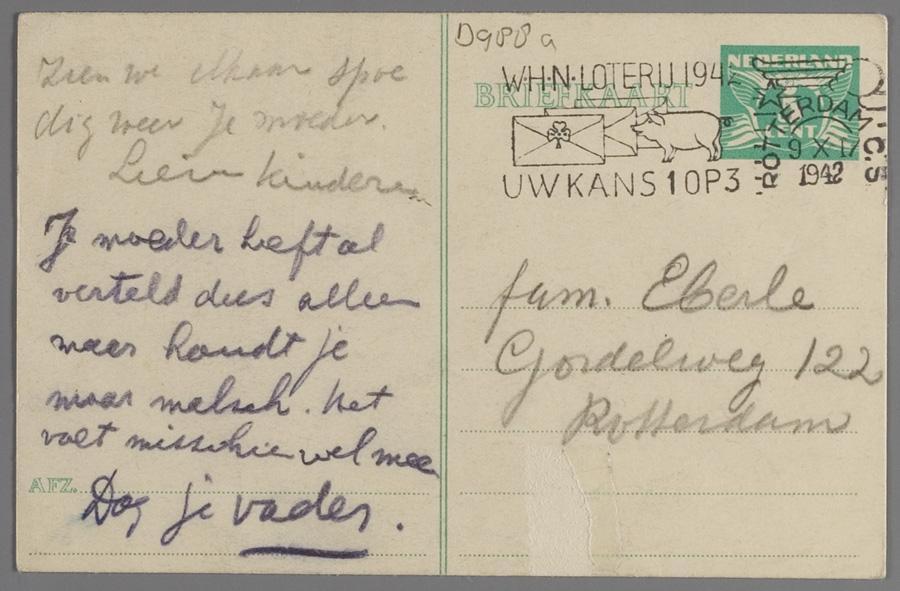 Zien we elkaar spoe
dig weer Je moeder.
Lieve kinderen
Je moeder heeft al
verteld dus alleen
maar houdt je
maar malsch. Het
valt misschie wel mee
AFZ.
Dag je vader.
D988 a
W.H.N. LOTERIJ 194
UW KANS 1 OP 3
BRIEFKAART
NEDERLAND
CENT
ROTTERDAM
9 X 17
1942
fam. Eberle
Gordelweg 122
Rotterdam